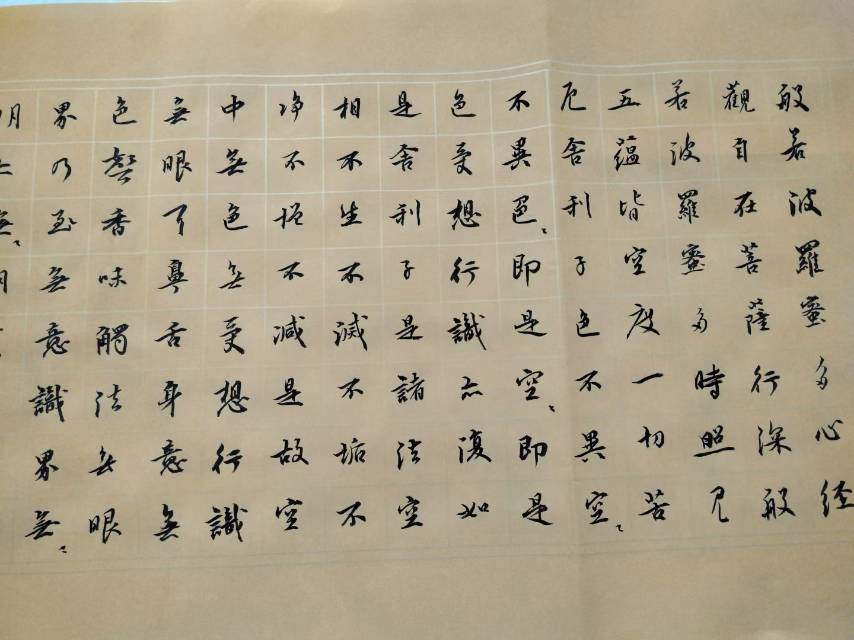 般若波羅蜜多心经
觀自在菩薩行深般
若波羅蜜多時照见
五蘊皆空度一切苦
厄舍利子色不異空〻
不異色〻即是空〻即是
色受想行識亦復如
是舍利子是諸法空
相不生不滅不垢不
净不增不减是故空
中無色無受想行識
無眼耳鼻舌身意無
色聲香味觸法無眼
界乃至無意識界無〻